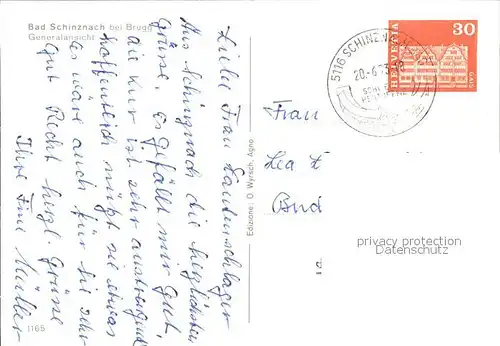 Bad Schinznach bei Brugg
Generalansicht
Liebe Frau Lautenschlager
Aus Schinznach die herzlichsten
Grüsse. Es gefällt mir gut,
die Kur ist sehr anstrengend
hoffentlich nützt sie etwas
es wäre auch für Sie sehr
gut Recht herzl. Grüsse
Ihre Frau Müller
1165
Edizione: O. Wyrsch, Agno
5116 SCHINZNACH
20.-6.
HELVETIA
30
GAIS
Frau
Lea
Bad
privacy protection
Datenschutz